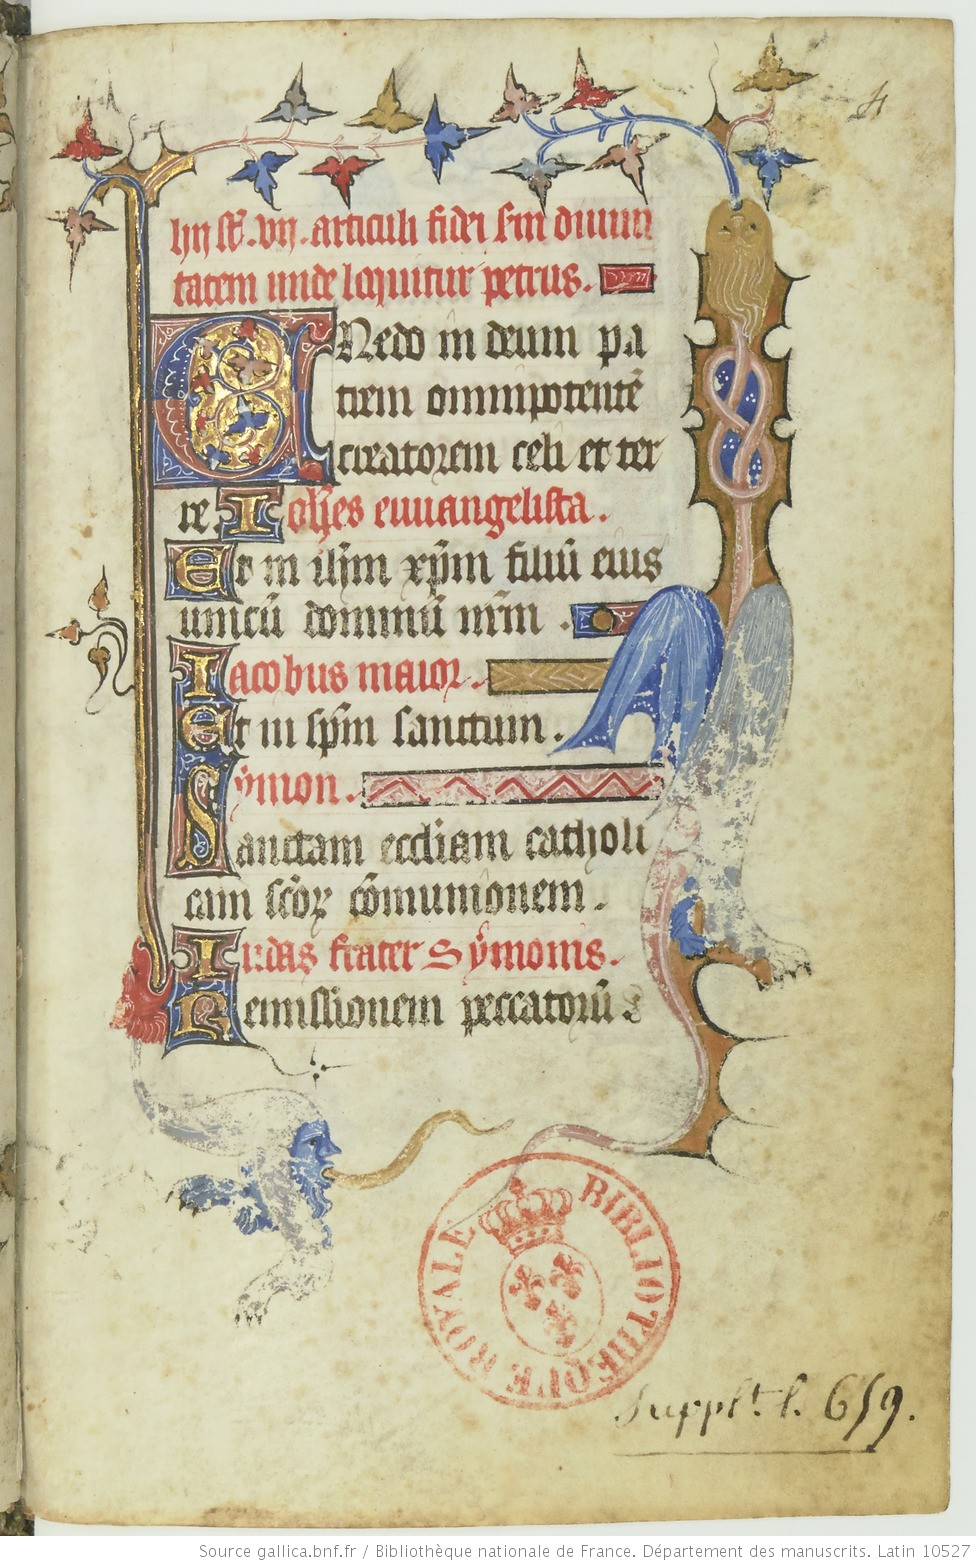 4
hij sūt .vij. articuli fidei sm diuini
tatem unde loquitur petrus.
CRedo in deum pa
trem omnipotentē
creatorem celi et ter
re. Ioh̄es euuangelista.
Et in ih̄m xp̄m filiū eius
unicū dominū nr̄m.
Iacobus maior.
Et in sp̄m sanctum.
Symon.
Sanctam eccl̄iam catholi
cam sc̄oꝝ cōmunionem.
Iudas frater Symonis.
Remissionem peccatorū
BIBLIOTHEQUE ROYALE
Supplt. l. 659.
Source gallica.bnf.fr / Bibliothèque nationale de France. Département des manuscrits. Latin 10527